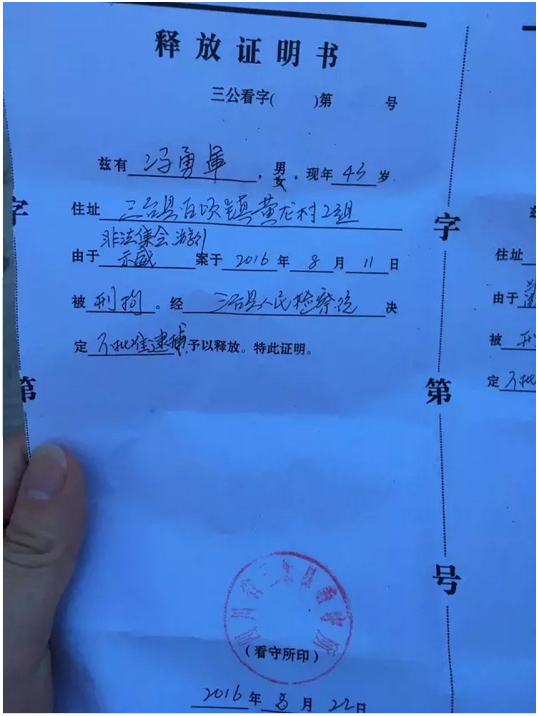 释放证明书
三公看字( )第 号
兹有 冯勇军 ,男女,现年 43 岁
住址 三台县百顷镇黄龙村2组
非法集会游行
由于 示威 案于 2016 年 8 月 11 日
被 刑拘 。经 三台县人民检察院 决
定 不批准逮捕 予以释放。特此证明。
(看守所印)
2016 年 8 月 22 日
字
第
号
字
第
兹
住址
由于
被 刑
定 不批